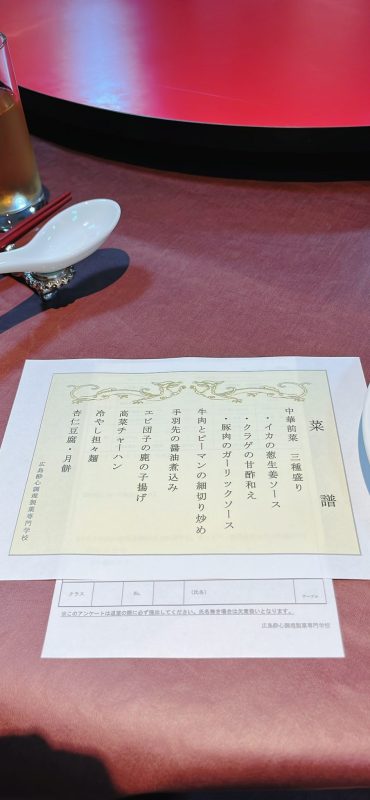 菜譜
中華前菜 三種盛り
・イカの葱生姜ソース
・クラゲの甘酢和え
・豚肉のガーリックソース
牛肉とピーマンの細切り炒め
手羽先の醤油煮込み
エビ団子の鹿の子揚げ
高菜チャーハン
冷やし担々麺
杏仁豆腐・月餅
広島酔心調理製菓専門学校
クラス
No.
(氏名)
テーブル
※このアンケートは退室の際に必ず提出してください。氏名無き場合は欠席扱いとなります。
広島酔心調理製菓専門学校